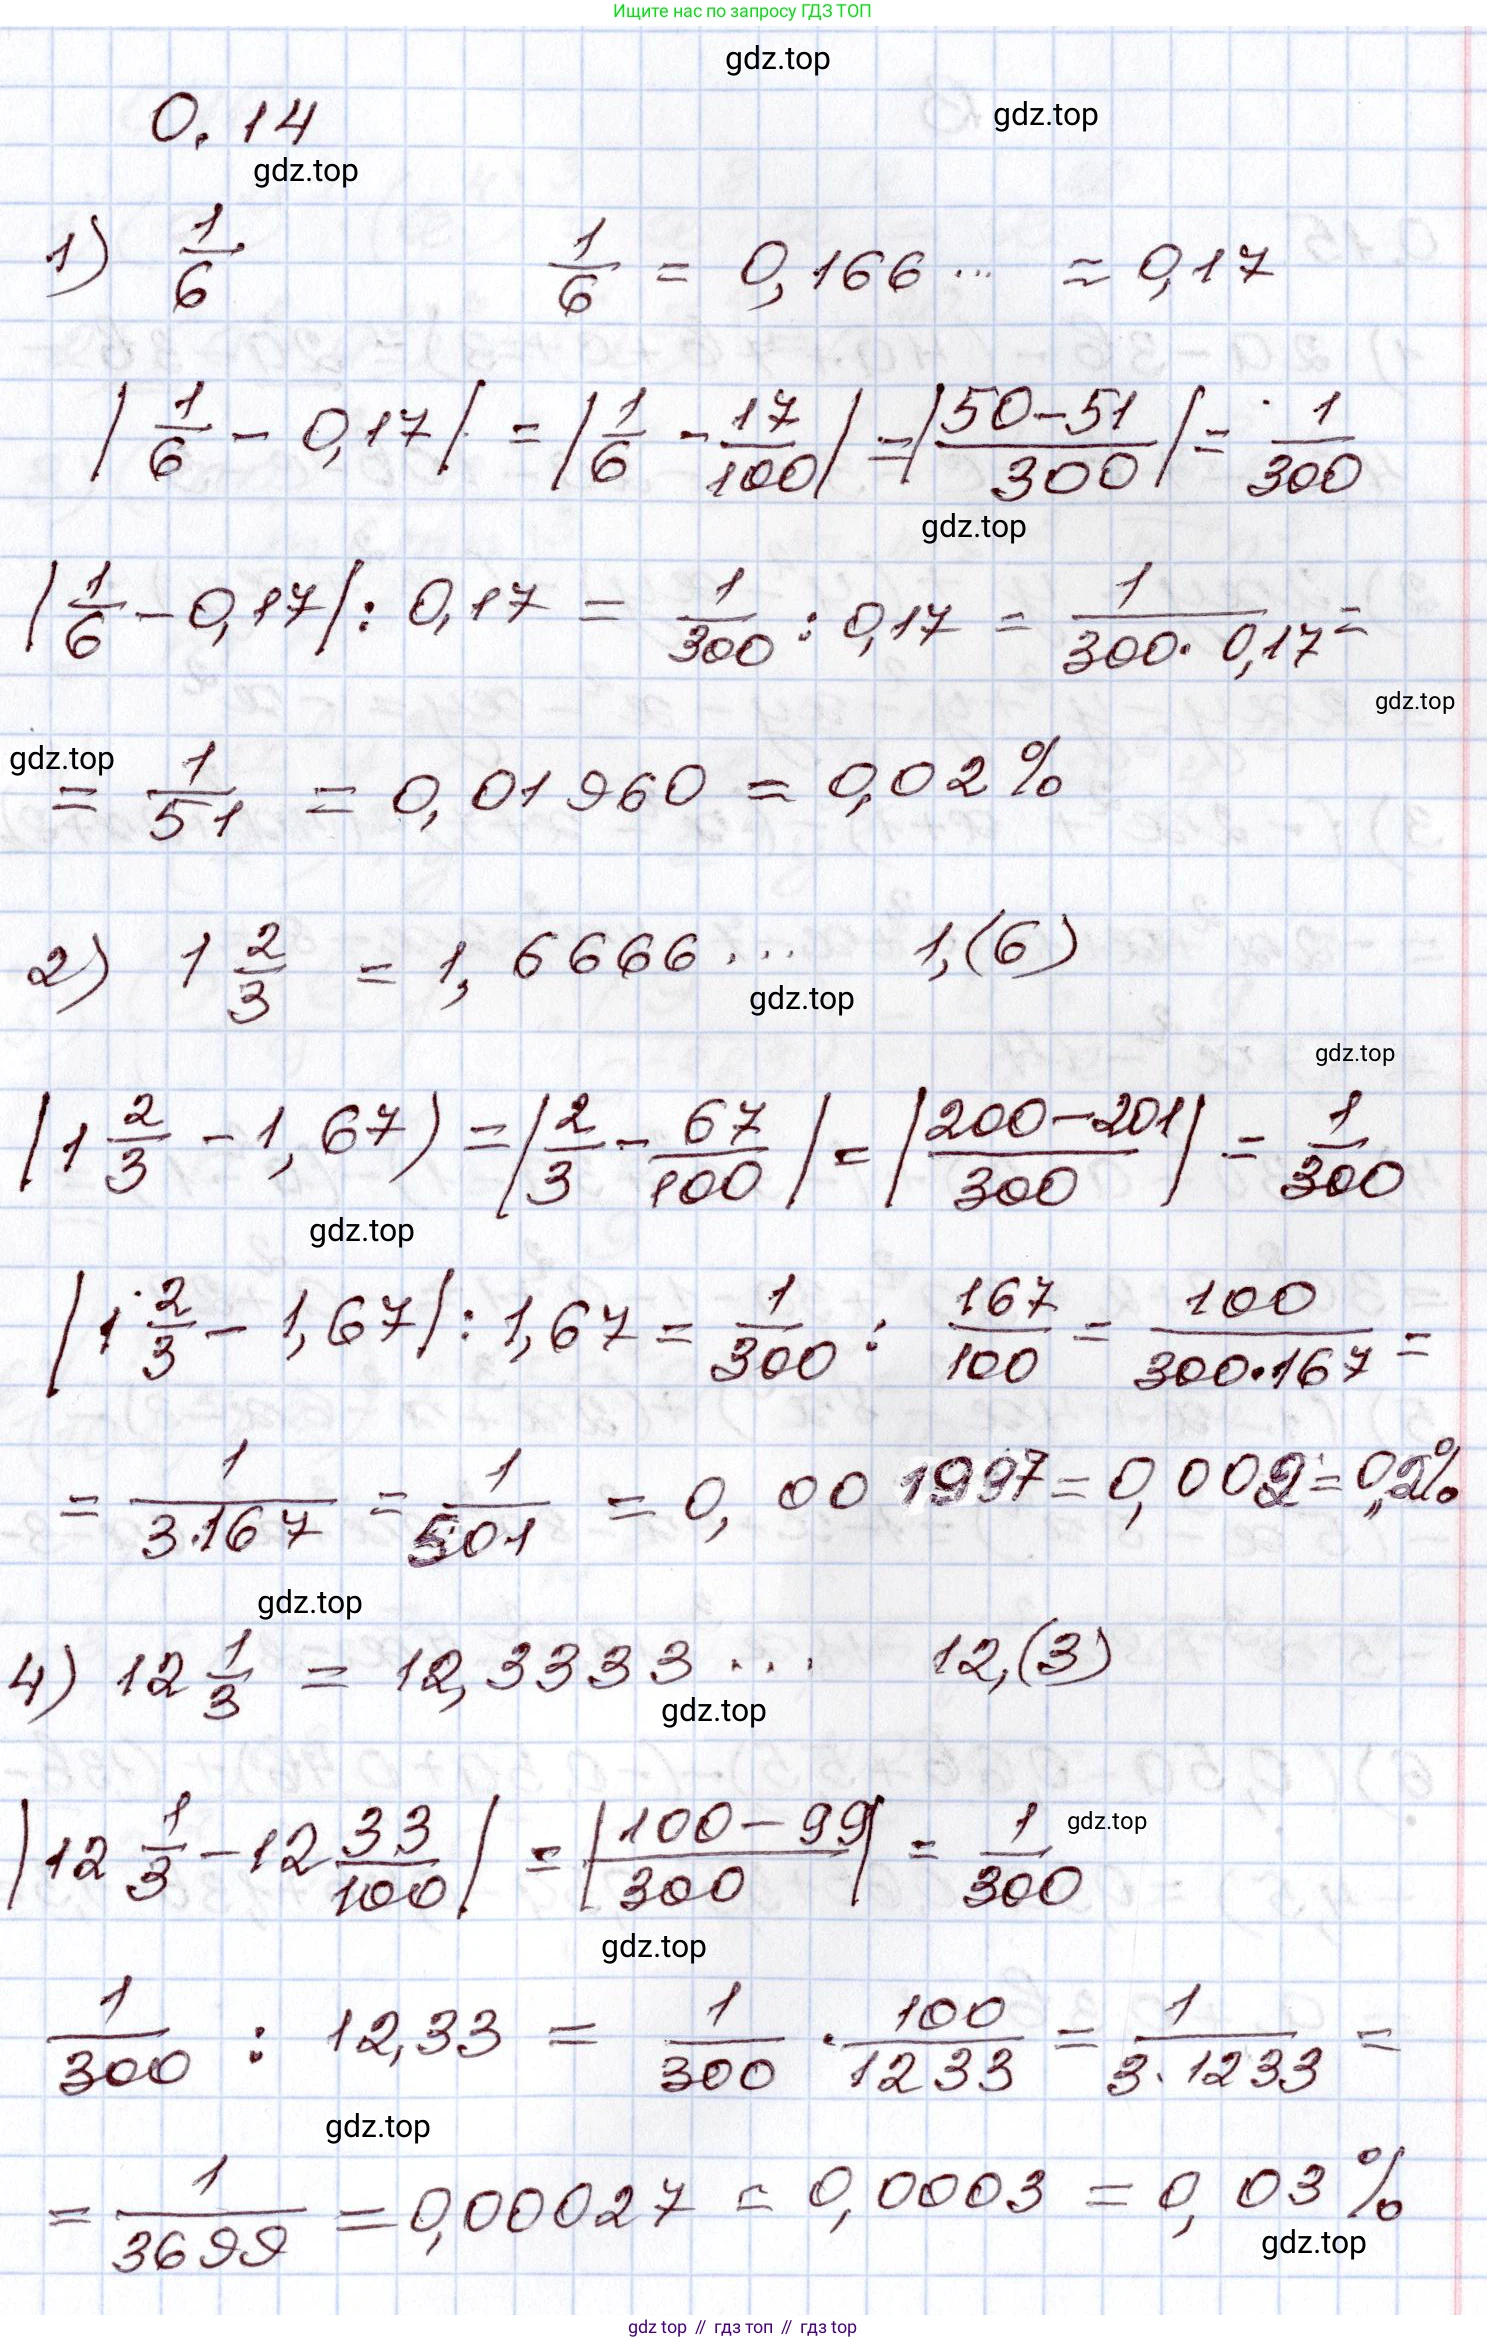 Ищите нас по запросу ГДЗ ТОП
gdz.top
gdz.top
0.14
gdz.top
1) 1/6   1/6 = 0,166... ≈ 0,17
|1/6 - 0,17| = |1/6 - 17/100| = |50-51/300| = 1/300
gdz.top
|1/6 - 0,17| : 0,17 = 1/300 : 0,17 = 1/300·0,17 =
gdz.top
gdz.top
= 1/51 = 0,01960 = 0,02%
2) 1 2/3 = 1,6666...   1,(6)
gdz.top
gdz.top
|1 2/3 - 1,67) = |2/3 - 67/100| = |200-201/300| = 1/300
gdz.top
|1 2/3 - 1,67| : 1,67 = 1/300 : 167/100 = 100/300·167 =
= 1/3·167 = 1/501 = 0,001997 = 0,002 = 0,2%
gdz.top
4) 12 1/3 = 12,3333...   12,(3)
gdz.top
|12 1/3 - 12 33/100| = |100-99/300| = 1/300
gdz.top
gdz.top
1/300 : 12,33 = 1/300 · 100/1233 = 1/3·1233 =
gdz.top
= 1/3699 = 0,00027 = 0,0003 = 0,03%
gdz.top
gdz top // гдз топ // гдз top